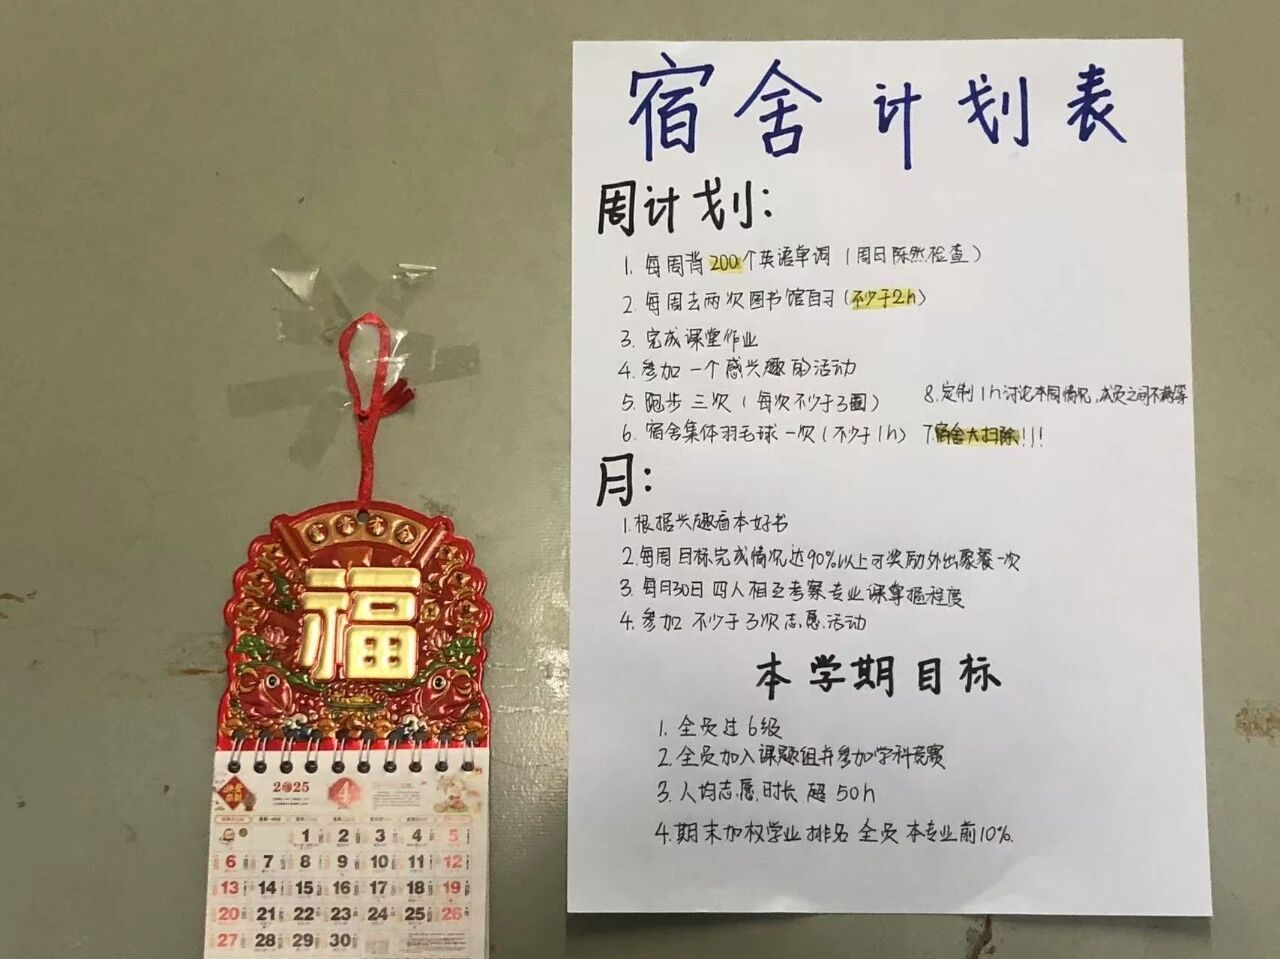 宿舍计划表
周计划:
1. 每周背200个英语单词（周日陈然检查）
2. 每周去两次图书馆自习（不少于2h）
3. 完成课堂作业
4. 参加一个感兴趣的活动
5. 跑步三次（每次不少于3圈）
6. 宿舍集体羽毛球一次（不少于1h）
7.宿舍大扫除!!!
8.定制1h讨论本周情况,成员之间不满等
月:
1.根据兴趣看本好书
2.每周目标完成情况达90%以上可奖励外出聚餐一次
3. 每月30日四人相互考察专业课掌握程度
4. 参加不少于3次志愿活动
本学期目标
1. 全员过6级
2.全员加入课题组并参加学科竞赛
3.人均志愿时长超50h
4.期末加权学业排名全员本专业前10%.
福
2025 4
1 2 3 4 5
6 7 8 9 10 11 12
13 14 15 16 17 18 19
20 21 22 23 24 25 26
27 28 29 30